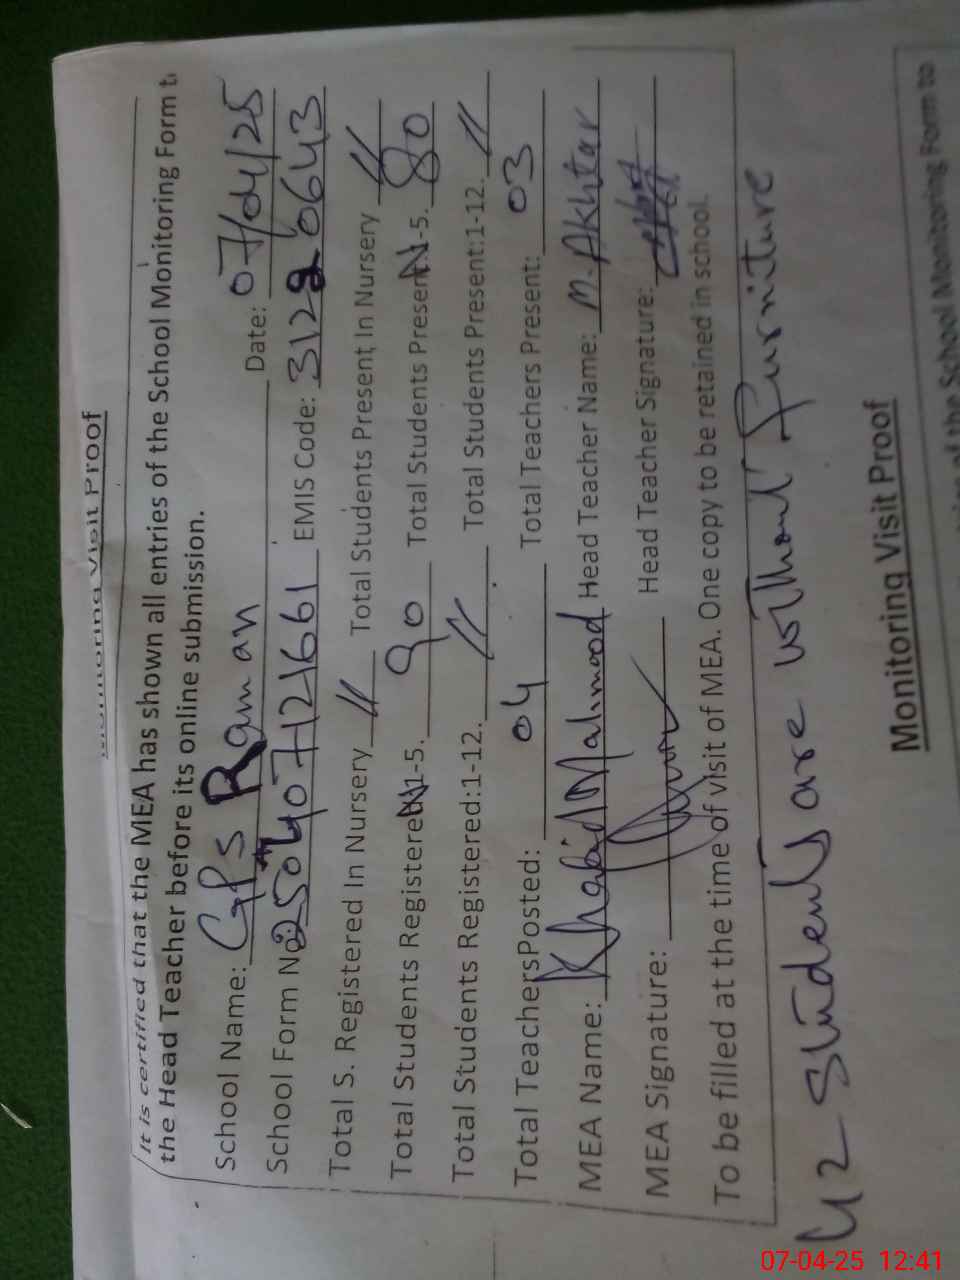 Monitoring Visit Proof
It is certified that the MEA has shown all entries of the School Monitoring Form t
the Head Teacher before its online submission.
School Name: GPS Raman Date: 07/04/25
School Form No: 250407121661 EMIS Code: 31220643
Total S. Registered In Nursery // Total Students Present In Nursery //
Total Students Registered N-5. 90 Total Students Present N-5. 80
Total Students Registered:1-12. // Total Students Present:1-12. //
Total TeachersPosted: 04 Total Teachers Present: 03
MEA Name: Khalid Mahmood Head Teacher Name: M. Akhtar
MEA Signature: Head Teacher Signature:
To be filled at the time of visit of MEA. One copy to be retained in school.
42 students are without furniture
Monitoring Visit Proof
of the School Monitoring Form to
07-04-25 12:41